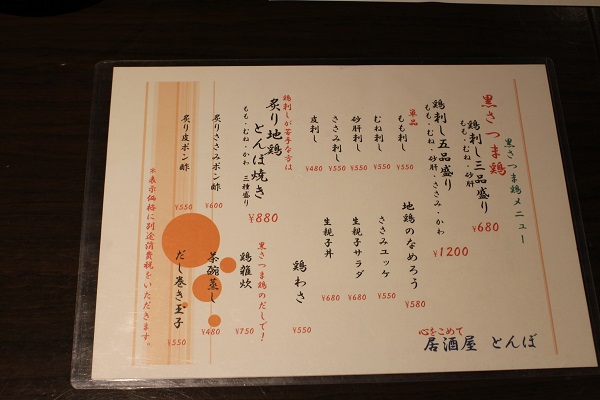 黒さつま鶏メニュー
黒さつま鶏
鶏刺し三品盛り ¥680
もも・むね・砂肝
鶏刺し五品盛り ¥1200
もも・むね・砂肝・ささみ・かわ
単品
もも刺し ¥550
むね刺し ¥550
砂肝刺し ¥550
ささみ刺し ¥550
皮刺し ¥480
地鶏のなめろう ¥580
ささみユッケ ¥550
生親子サラダ ¥680
生親子丼 ¥680
鶏わさ ¥550
鶏刺しが苦手な方は
炙り地鶏とんぼ焼き ¥880
もも・むね・かわ 三種盛り
炙りささみポン酢 ¥600
炙り皮ポン酢 ¥550
黒さつま鶏のだしで!
鶏雑炊 ¥750
茶碗蒸し ¥480
だし巻き玉子 ¥550
※表示価格に別途消費税をいただきます。
心をこめて
居酒屋 とんぼ